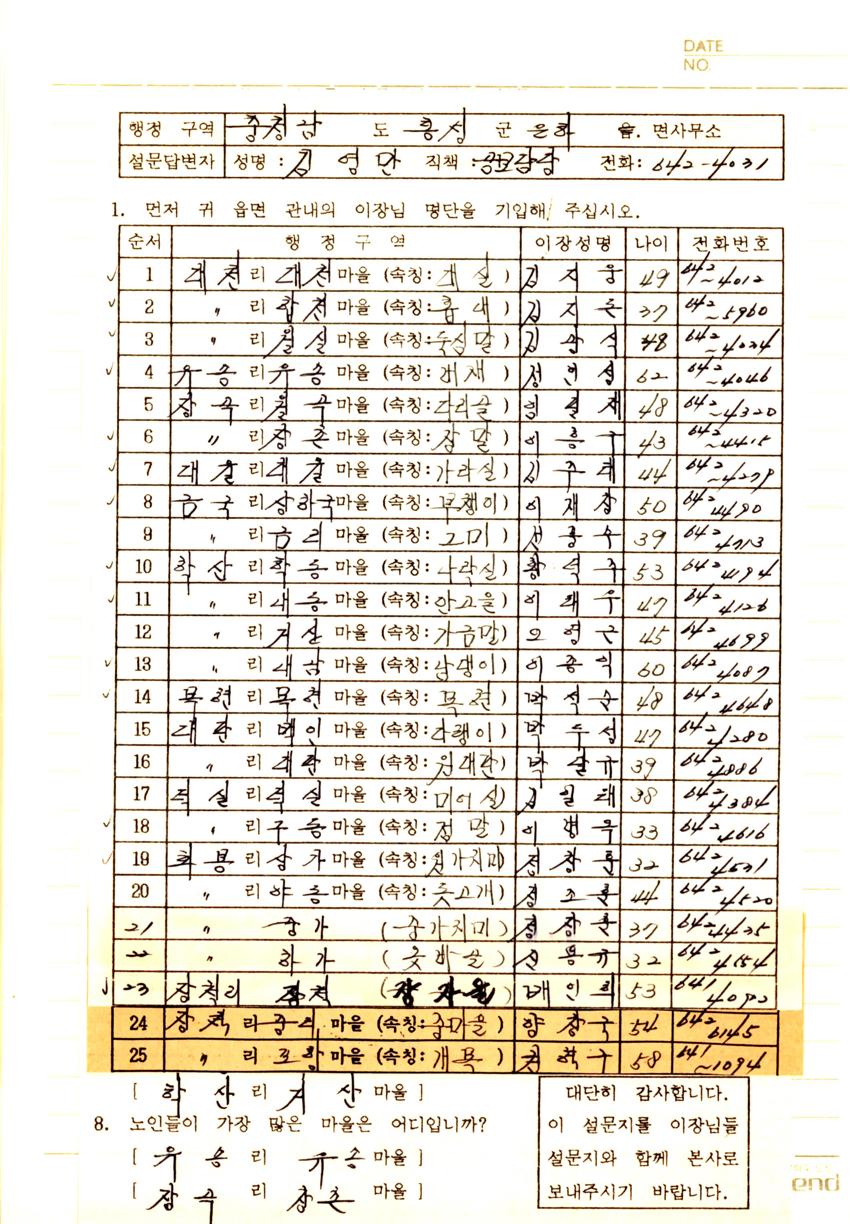 DATE
NO.
행정 구역 충청남 도 홍성 군 은하 읍. 면사무소
설문답변자 성명 : 김영만 직책 : 담당 전화: 642-4031
1. 먼저 귀 읍면 관내의 이장님 명단을 기입해 주십시오.
순서 행 정 구 역 이장성명 나이 전화번호
1 대천 리 대천 마을 (속칭: 대실 ) 김지웅 49 642~4012
2 〃 리 합천 마을 (속칭: ) 김지 37 642~5960
3 〃 리 마을 (속칭: ) 김 석 48 642~4024
4 유송 리 유송 마을 (속칭: ) 정인 62 642~4046
5 장곡 리 마을 (속칭: 다라골 ) 임 재 48 642~4320
6 〃 리 장촌 마을 (속칭: 장말 ) 이흥구 43 642~4415
7 대율 리 대율 마을 (속칭: 가라실 ) 김주태 44 642~4279
8 금국 리 상하국 마을 (속칭: ) 이재창 50 642 4490
9 〃 리 금리 마을 (속칭: 그미 ) 서종수 39 642 4713
10 학산 리 학동 마을 (속칭: 나락실 ) 황석주 53 642 4194
11 〃 리 내동 마을 (속칭: 안고을 ) 이태우 47 642 4126
12 〃 리 거산 마을 (속칭: 가금말 ) 오영근 45 642 4699
13 〃 리 내남 마을 (속칭: 남댕이 ) 이종익 60 642 4087
14 목현 리 목현 마을 (속칭: 목현 ) 박석순 48 642 4648
15 대판 리 마을 (속칭: 다랭이 ) 박두성 47 642 4280
16 〃 리 대판 마을 (속칭: 원대판 ) 박 규 39 642 4886
17 덕실 리 덕실 마을 (속칭: ) 김일태 38 642 4384
18 〃 리 구동 마을 (속칭: 점말 ) 이병 33 642 4616
19 화봉 리 상가 마을 (속칭: 윗가지미 ) 정창훈 32 642 4531
20 〃 리 야동 마을 (속칭: 풋고개 ) 정조훈 44 642 4520
21 〃 중가 ( 중가지미 ) 37 642 4435
22 〃 하가 ( ) 신동규 32 642 4154
23 장척리 장척 ( ) 배인희 53 641 4092
24 장척 리 마을 (속칭: 중마을 ) 창국 54 642 6145
25 〃 리 마을 (속칭: ) 58 641~1094
[ 학산 리 거산 마을 ]
8. 노인들이 가장 많은 마을은 어디입니까?
[ 유송 리 유송 마을 ]
[ 장곡 리 장촌 마을 ]
대단히 감사합니다.
이 설문지를 이장님들
설문지와 함께 본사로
보내주시기 바랍니다.
end